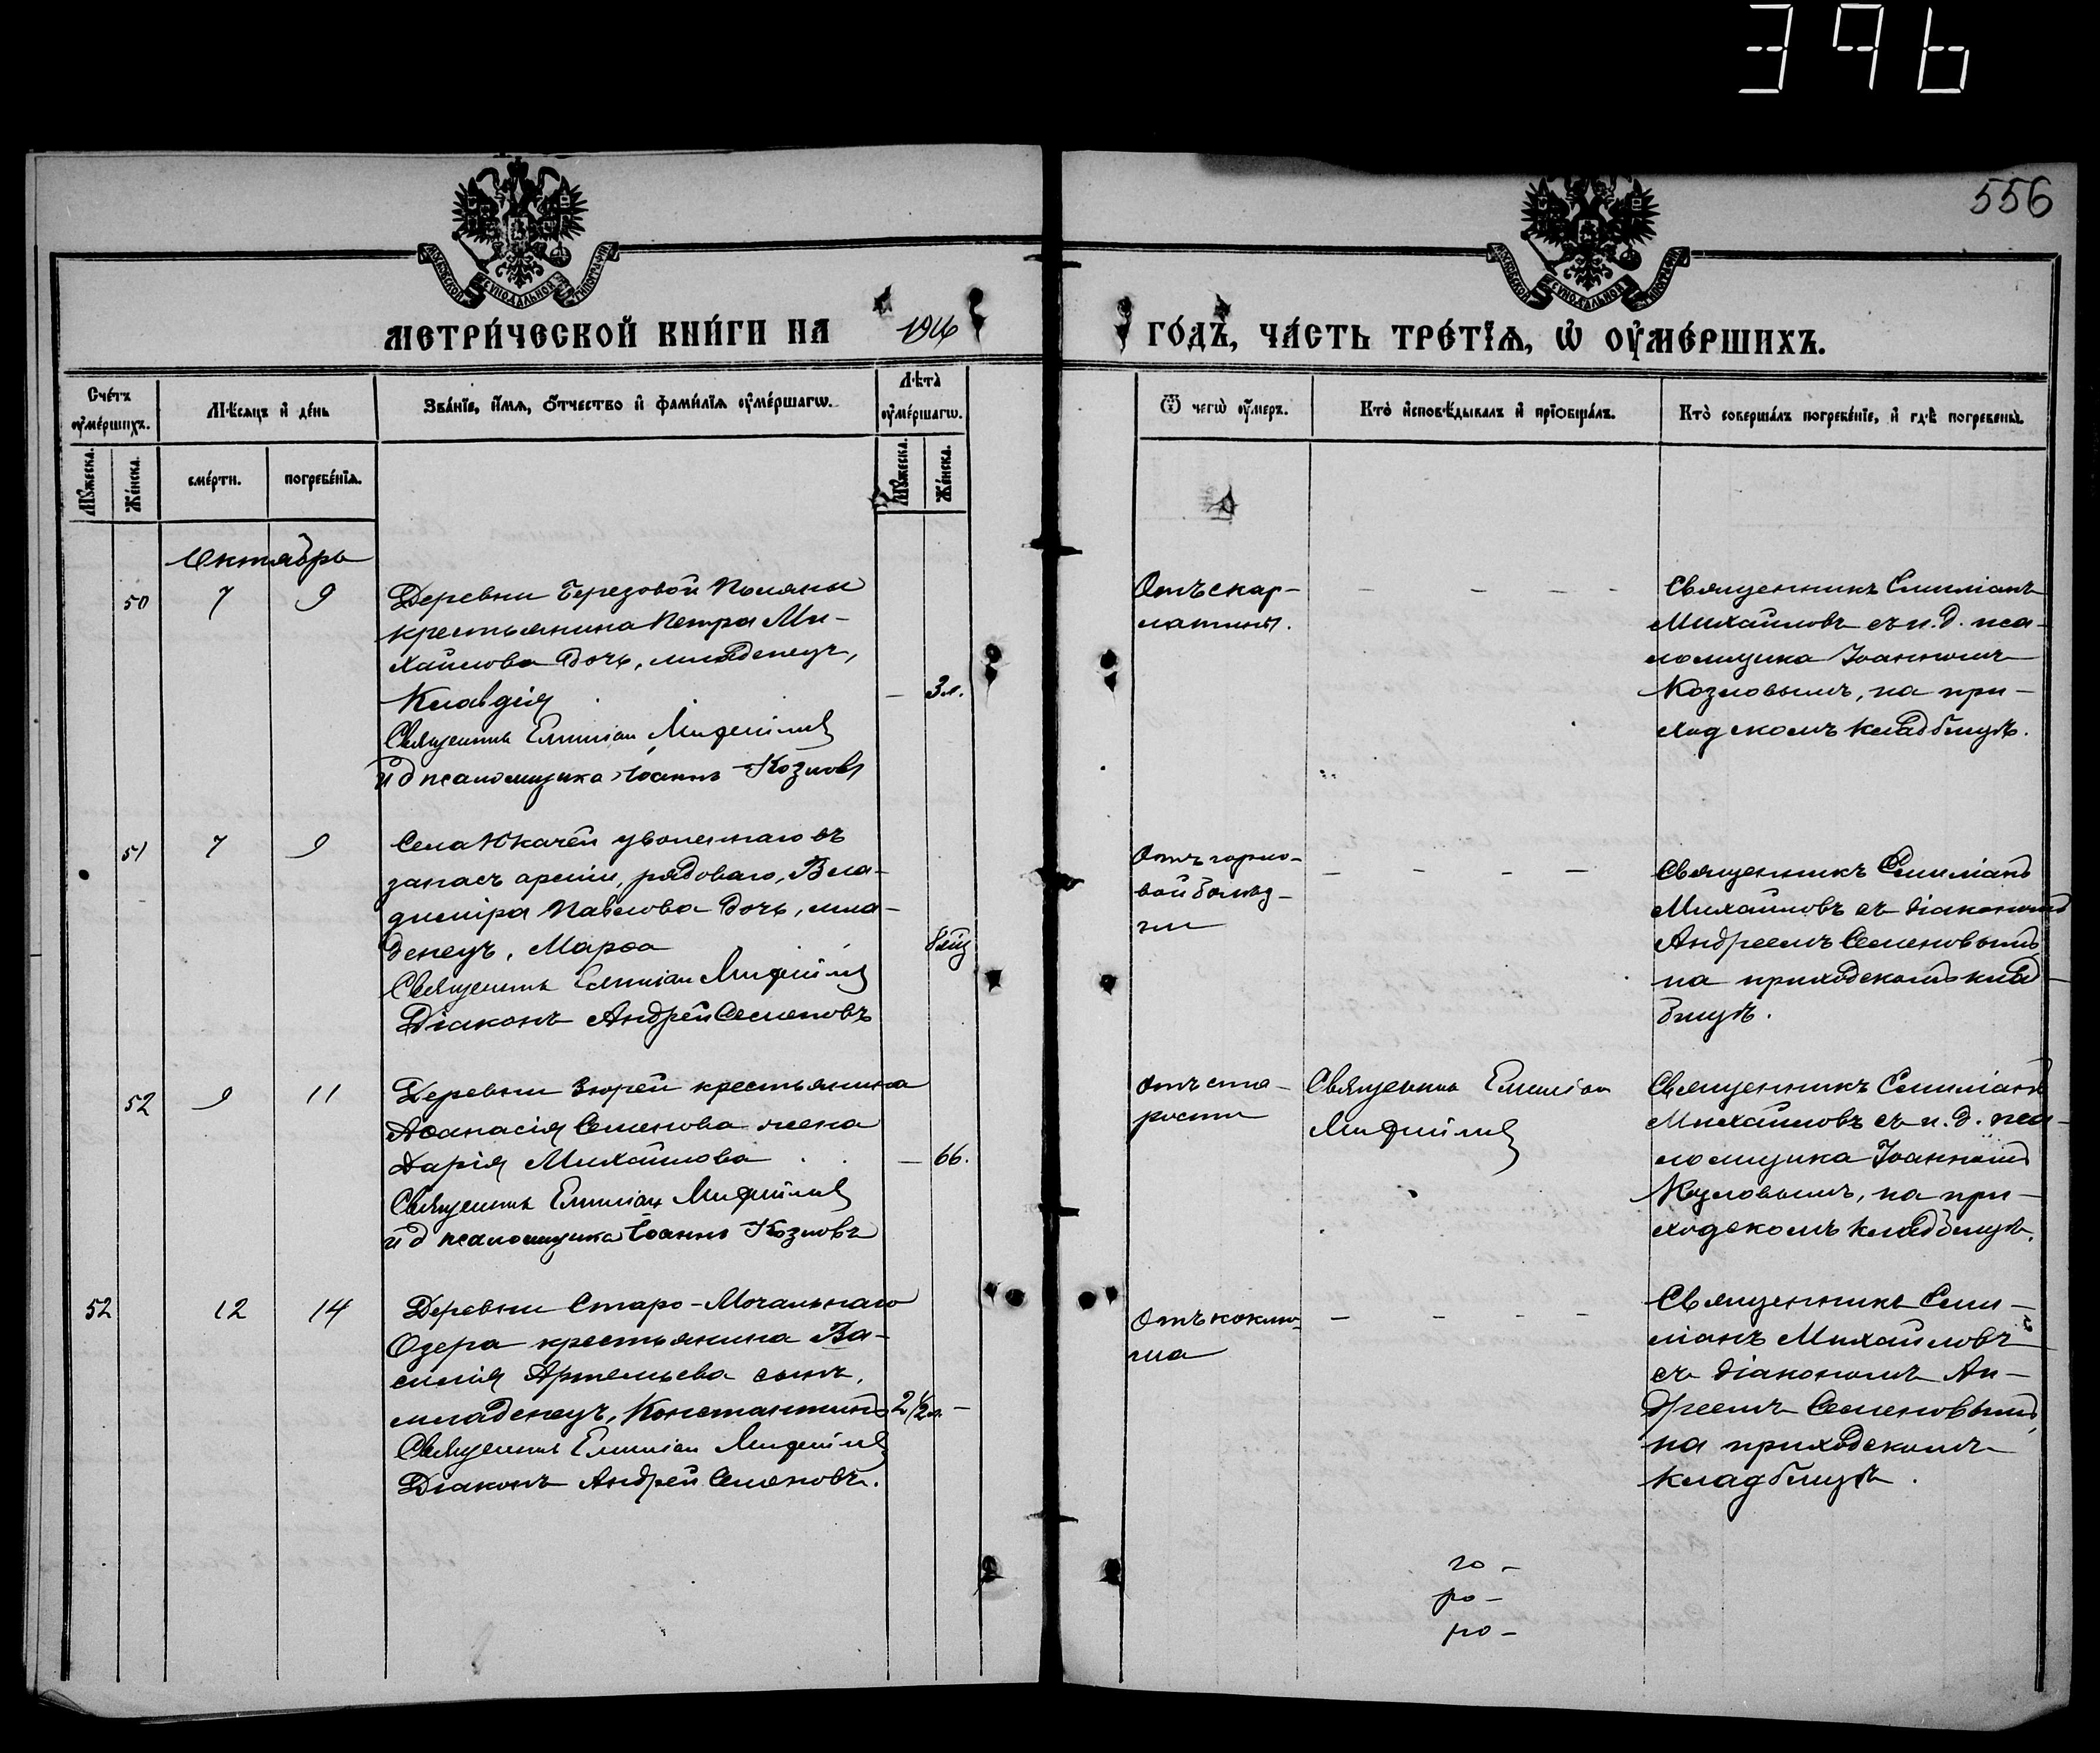 396
556
МОСКОВСКОЙ СѴНОДАЛЬНОЙ ТИПОГРАФІИ
МОСКОВСКОЙ СѴНОДАЛЬНОЙ ТИПОГРАФІИ
МЕТРИ́ЧЕСКОЙ КНИ́ГИ НА 1916
ГО́ДЪ, ЧА́СТЬ ТРЕ́ТЇѦ, Ѡ҆ ОУ҆МЕ́РШИХЪ.
Сче́тъ оу҆ме́ршихъ.
Мѣ́сяцъ и҆ де́нь
Зва́нїе, и҆́мѧ, ѻ҆́тчество и҆ фами́лїѧ оу҆ме́ршагѡ.
Лѣ́та̀ оу҆ме́ршагѡ.
Ѿ чегѡ̀ оу҆́меръ.
Кто̀ и҆сповѣ́дывалъ и҆ прїѡбща́лъ.
Кто̀ соверша́лъ погребе́нїе, и҆ гдѣ̀ погребены̀.
Мꙋ́жеска.
Же́нска.
сме́рти.
погребе́нїѧ.
Мꙋ́жеска.
Же́нска.
Октябрь
50 7 9
Деревни Березовой Поляны
крестьянина Петра Ми-
хайлова дочь, младенецъ,
Клавдія — 3 л.
Священникъ Емиліан Михайлов
И д псаломщика Іоаннъ Козловъ
Отъ скар-
латины.
— — — -
Священникъ Емиліанъ
Михайловъ съ и. д. пса-
ломщика Іоанномъ
Козловымъ, на при-
ходскомъ кладбищѣ.
51 7 9
Села Юкачей уволеннаго въ
запасъ арміи, рядоваго, Вла-
диміра Павлова дочь, мла-
денецъ, Марѳа 8 мц
Священникъ Емиліан Михайлов
Діаконъ Андрей Семеновъ
Отъ горло-
вой болѣз-
ни
— - - —
Священникъ Емиліанъ
Михайловъ съ діакономъ
Андреемъ Семеновымъ
на приходскомъ клад-
бищѣ.
52 9 11
Деревни Зюрей крестьянина
Аѳанасія Семенова жена
Дарія Михайлова . . — 66.
Священникъ Емиліан Михайлов
и д псаломщика Іоаннъ Козловъ
Отъ ста-
рости
Священник Емиліан
Михайлов
Священникъ Емиліанъ
Михайловъ съ и. д. пса-
ломщика Іоанномъ
Козловымъ, на при-
ходскомъ кладбищѣ.
52 12 14
Деревни Старо-Мочальнаго
Озера крестьянина Ва-
силія Артемьева сынъ,
младенецъ, Константинъ 2 1/2 л. —
Священник Емиліан Михайлов
Діаконъ Андрей Семеновъ.
Отъ коклю-
ша
— - - —
Священникъ Еми-
ліанъ Михайловъ
съ діакономъ Ан-
дреемъ Семеновымъ,
на приходскомъ
кладбищѣ.
го -
ро -
но -